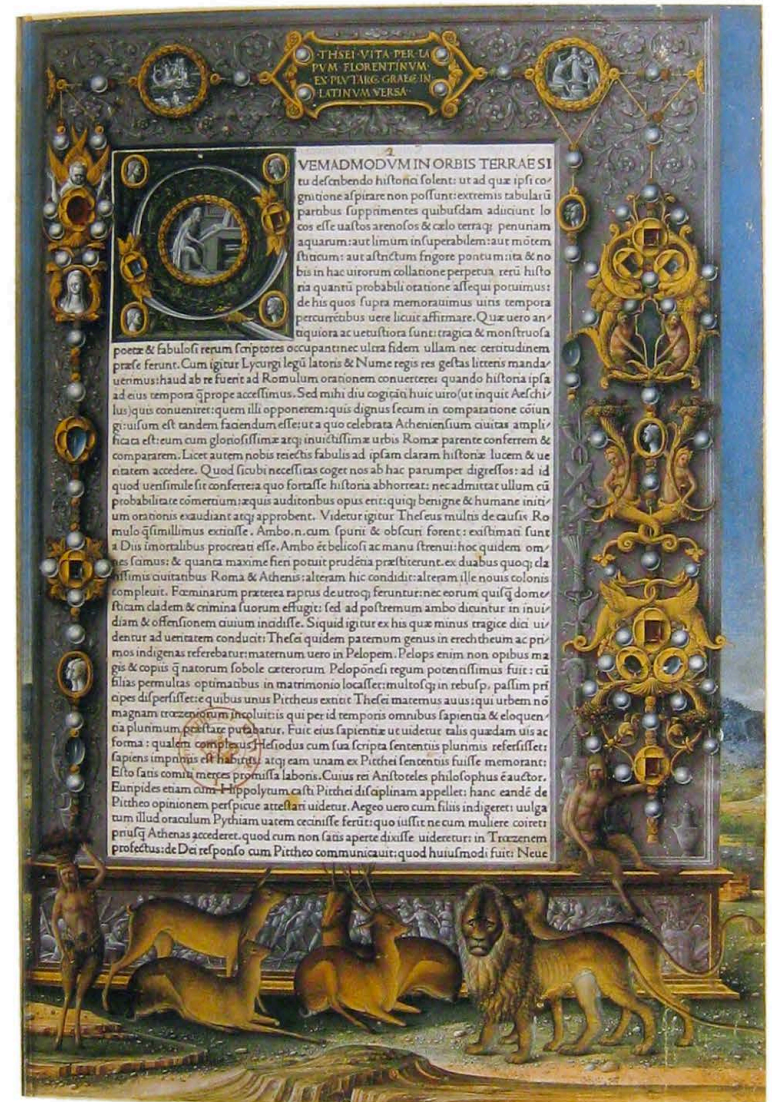 ·THSEI·VITA·PER·LA
PVM·FLORENTINVM·
EX·PLVTARC·GRAECE·IN
LATINVM·VERSA·
Q
VEMADMODVM IN ORBIS TERRAE SI
tu describendo historici solent: ut ad quæ ipsi co
gnitione aspirare non possunt: extremis tabularũ
partibus supprimentes quibusdam adiciunt lo
cos esse uastos arenosos & cælo terraq; penuriam
aquarum: aut limum insuperabilem: aut mõtem
stiticum: aut astrictum frigore pontum: ita & no
bis in hac uirorum collatione perpetua rerũ histo
ria quantũ probabili oratione assequi potuimus:
de his quos supra memorauimus uiris tempora
percurrẽtibus uere licuit affirmare. Quæ uero an
tiquiora ac uetustiora sunt: tragica & monstruosa
poetæ & fabulosi rerum scriptores occupant: nec ultra fidem ullam nec certitudinem
præse ferunt. Cum igitur Lycurgi legũ latoris & Nume regis res gestas litteris manda
uerimus: haud ab re fuerit ad Romulum orationem conuertere: quando historia ipsa
ad eius tempora q̃prope accessimus. Sed mihi diu cogitãti huic uiro (ut inquit Aeschi
lus) quis conueniret: quem illi opponerem: quis dignus secum in comparatione cõiun
gi: uisum est tandem faciendum esse: ut a quo celebrata Atheniensium ciuitas ampli
ficata est: eum cum gloriosissimæ atq; inuictissimæ urbis Romæ parente conferrem &
compararem. Licet autem nobis reiectis fabulis ad ipsam claram historiæ lucem & ue
ritatem accedere. Quod sicubi necessitas coget nos ab hac parumper digressos: ad id
quod uerisimile sit conferre: a quo fortasse historia abhorreat: nec admittat ullum cũ
probabilitate cõmertium: æquis auditoribus opus erit: quiq; benigne & humane initi
um orationis exaudiant atq; approbent. Videtur igitur Theseus multis de causis Ro
mulo q̃simillimus extitisse. Ambo.n.cum spurii & obscuri forent: existimati sunt
a Diis ĩmortalibus procreati esse. Ambo ẽt belicosi ac manu strenui: hoc quidem om
nes scimus: & quanta maxime fieri potuit prudẽtia præstiterunt. ex duabus quoq; cla
rissimis ciuitatibus Roma & Athenis: alteram hic condidit: alteram ille nouis colonis
compleuit. Fœminarum præterea raptus de utroq; feruntur: nec eorum quisq̃ dome
sticam cladem & crimina suorum effugit: sed ad postremum ambo dicuntur in inui
diam & offensionem ciuium incidisse. Siquid igitur ex his quæ minus tragice dici ui
dentur ad ueritatem conducit: Thesei quidem paternum genus in erechtheum ac pri
mos indigenas referebatur: maternum uero in Pelopem. Pelops enim non opibus ma
gis & copiis q̃ natorum sobole cæterorum Peloponẽsi regum potentissimus fuit: cũ
filias permultas optimatibus in matrimonio locasset: multosq; in rebusp. passim prĩ
cipes dispersisset: e quibus unus Pittheus extitit Thesei maternus auus: qui urbem nõ
magnam trœzeniorum incoluit: is qui per id temporis omnibus sapientia & eloquen
tia plurimum præstare putabatur. Fuit eius sapientiæ ut uidetur talis quædam uis ac
forma: qualem complexus Hesiodus cum sua scripta sententiis plurimis refersisset:
sapiens atq; eam unam ex Pitthei sententiis fuisse memorant:
Esto satis comiti merces promissa laboris. Cuius rei Aristoteles philosophus ẽ auctor.
Euripides etiam cum Hippolytum casti Pitthei disciplinam appellet: hanc eandẽ de
Pittheo opinionem perspicue attestari uidetur. Aegeo uero cum filiis indigeret: uulga
tum illud oraculum Pythiam uatem cecinisse ferũt: quo iussit ne cum muliere coiret:
priusq̃ Athenas accederet. quod cum non satis aperte dixisse uideretur: in Trœzenem
profectus: de Dei responso cum Pittheo communicauit: quod huiusmodi fuit: Neue